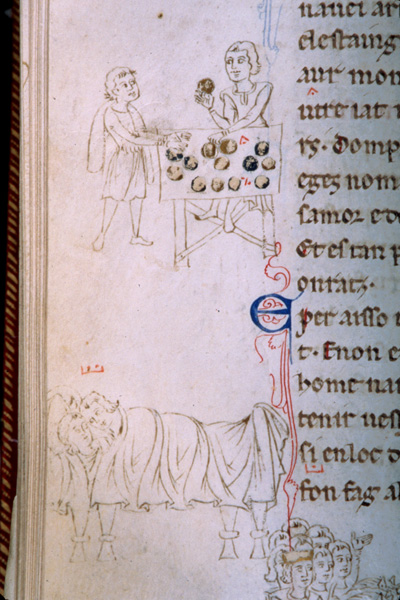 nauei ar
elestaing
aur mon
uere iat
rs. Domp
eges nom
samor e
Et es tan p
onratz.
E
per aisso
t. Enon e
home nai
tenir ues
si en loc d
fon fag al